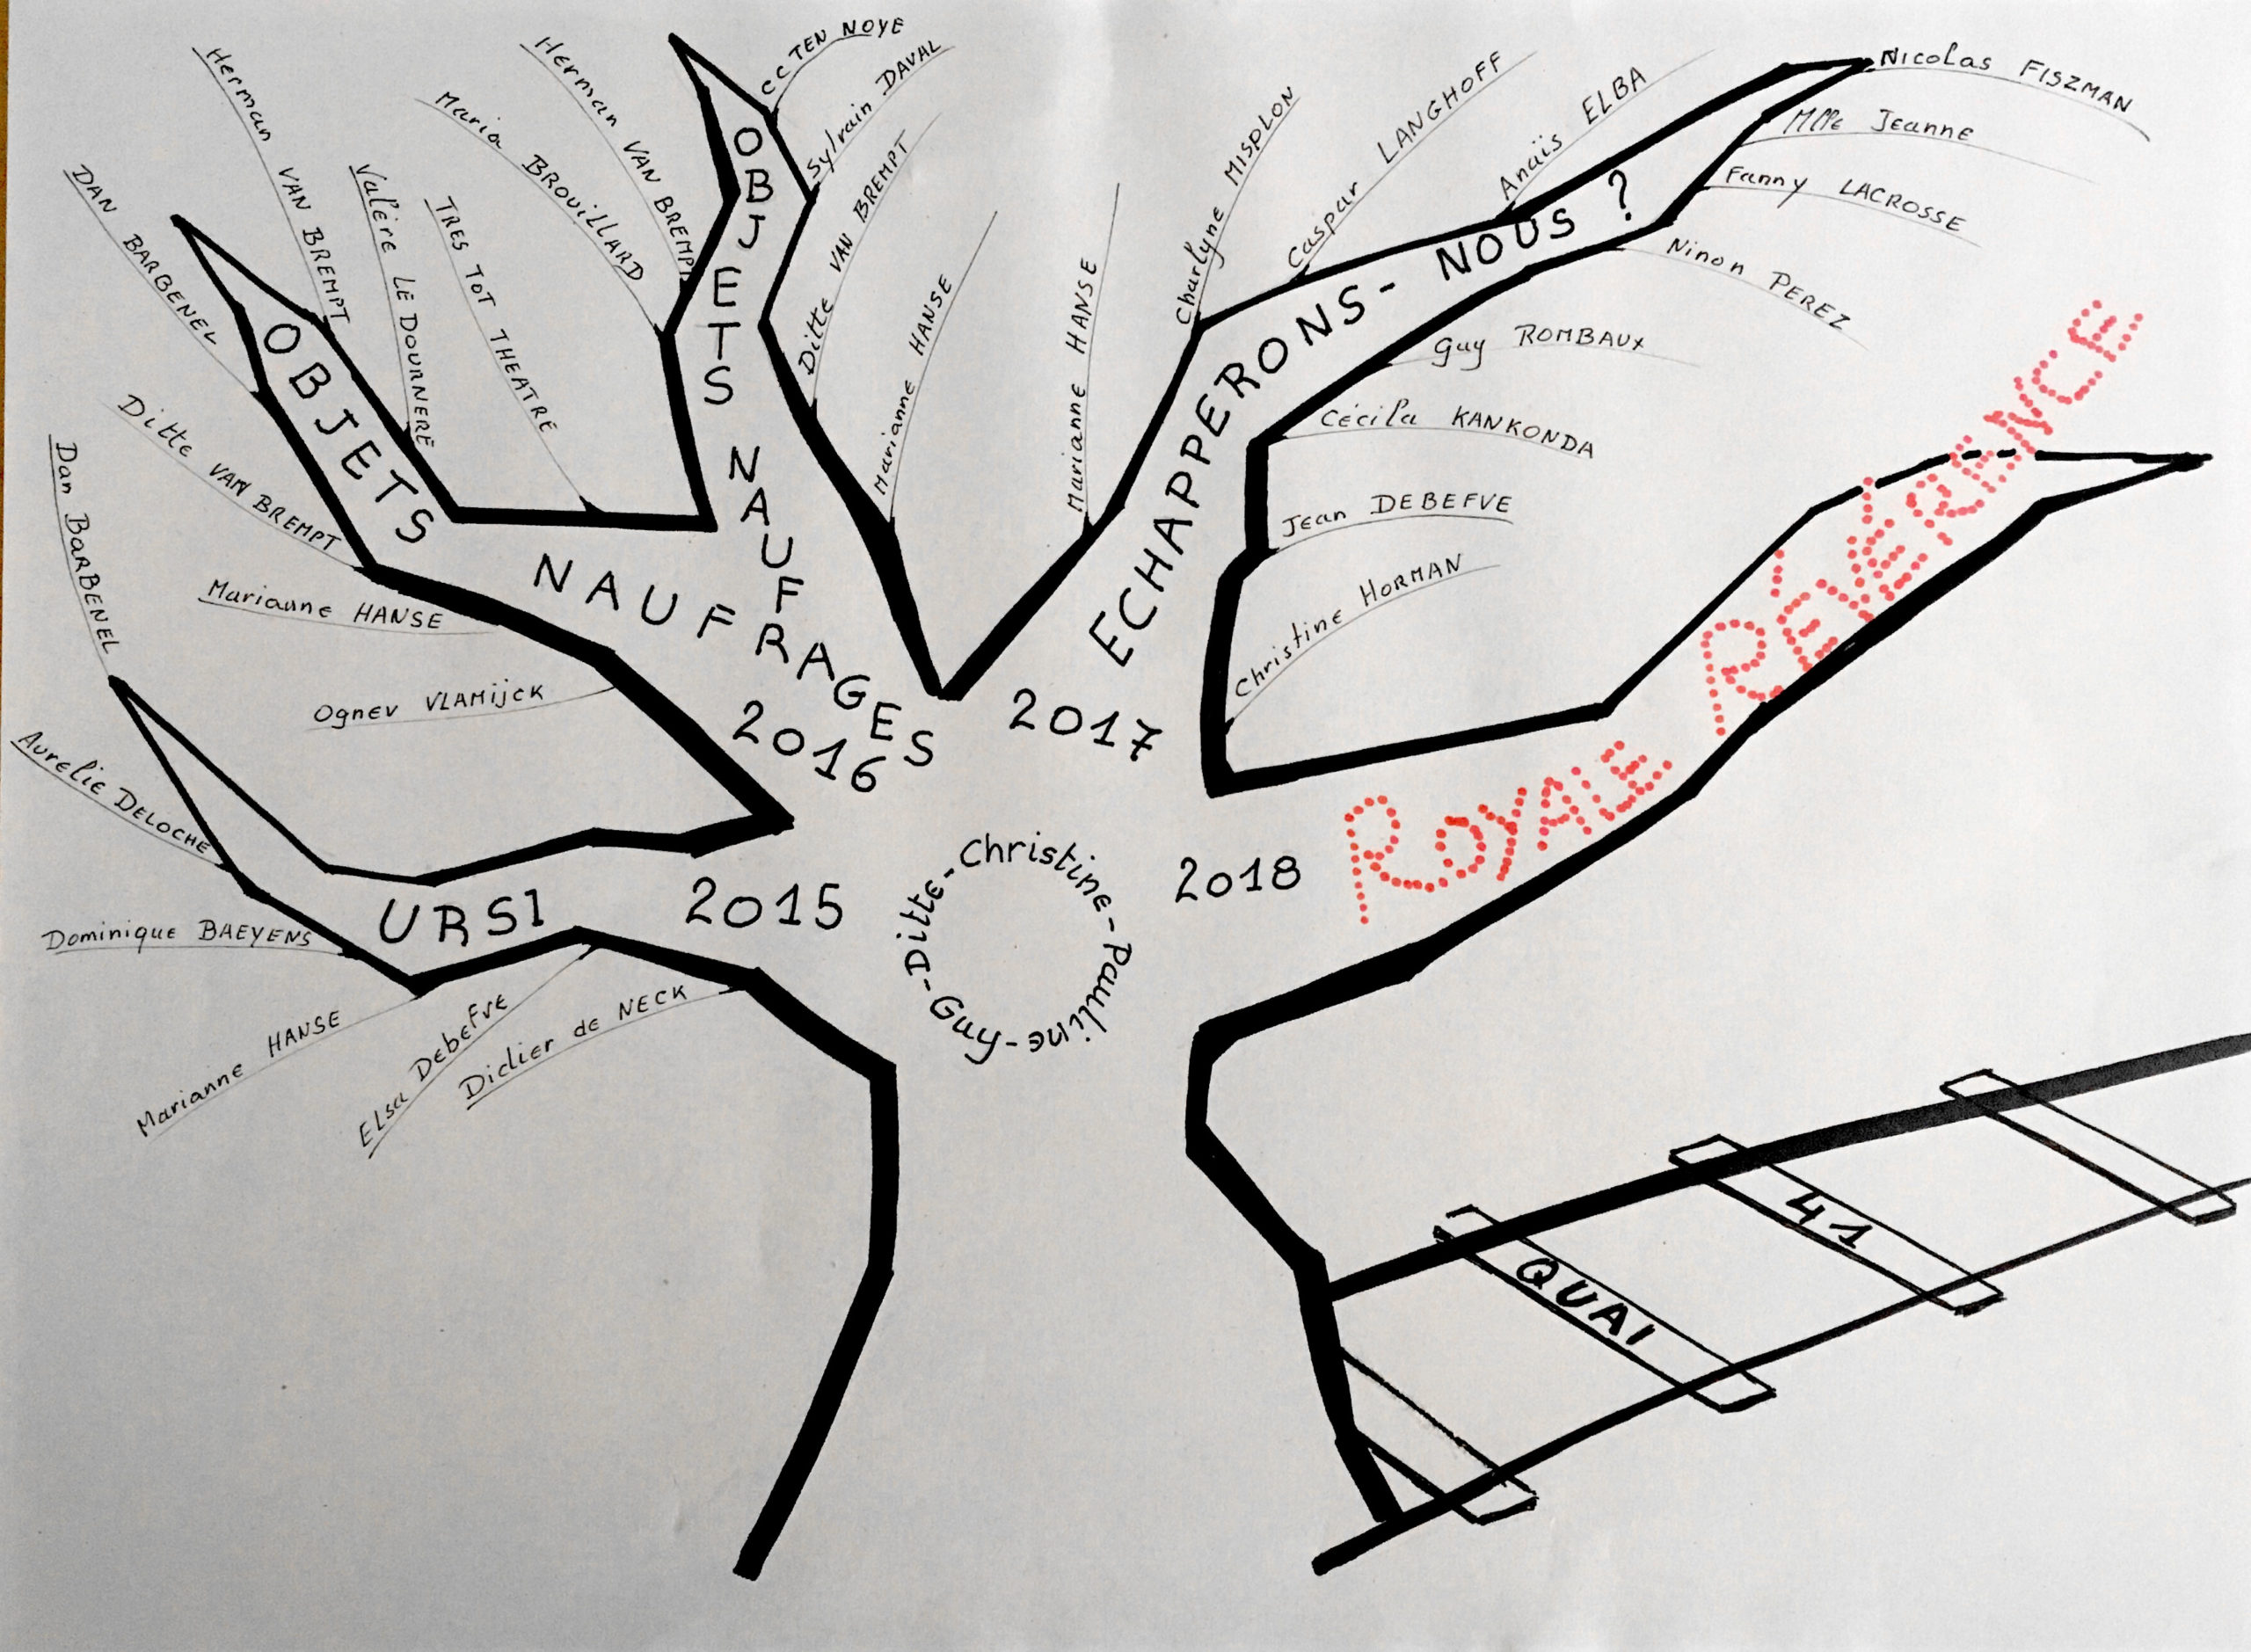 Herman VAN BREMPT
DAN BARBENEL
Valère LE DOURNERE
TRES TOT THEATRE
OBJETS
Ditte VAN BREMPT
Marianne HANSE
Ognev VLAMijCK
NAUFRAGES
Maria BROUILLARD
Herman VAN BREMPT
CC TEN NOYE
Sylvain DAVAL
Ditte VAN BREMPT
Marianne HANSE
OBJETS NAUF
2016
Marianne HANSE
Charlyne MISPLON
Caspar LANGHOFF
Anaïs ELBA
Nicolas FISZMAN
Mlle Jeanne
Fanny LACROSSE
Ninon PEREZ
Guy ROMBAUX
Cécila KANKONDA
Jean DEBEFVE
Christine HORMAN
ECHAPPERONS-NOUS ?
2017
Dan BARBENEL
Aurelie DELOCHE
Dominique BAEYENS
Marianne HANSE
Elsa DebeFve
Didier de NECK
URSI
2015
2018
ROYALE RÉVÉRENCE
Ditte-Christine-Pauline-Guy-
QUAI
41